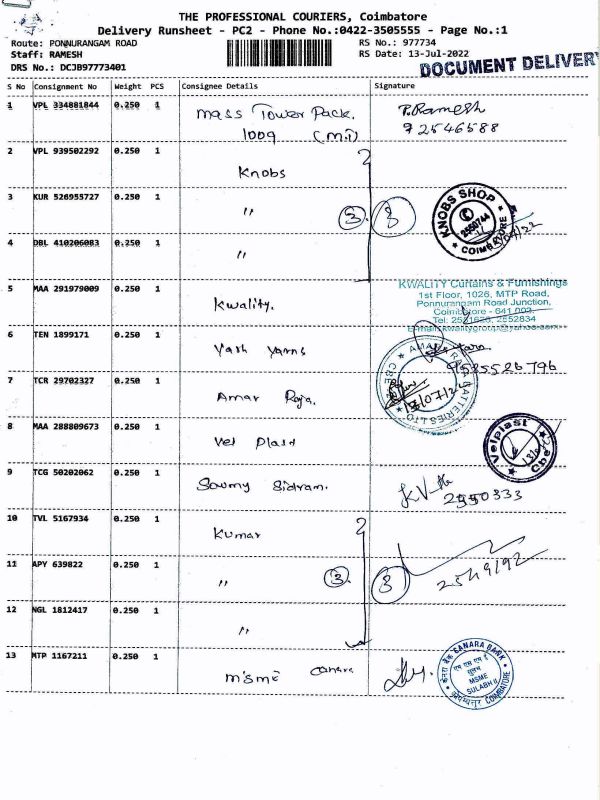 THE PROFESSIONAL COURIERS, Coimbatore
Delivery Runsheet - PC2 - Phone No.:0422-3505555 - Page No.:1
Route: PONNURANGAM ROAD RS No.: 977734
Staff: RAMESH RS Date: 13-Jul-2022
DRS No.: DCJB97773401
DOCUMENT DELIVERY
S No Consignment No Weight PCS Consignee Details Signature
1 VPL 334881844 0.250 1 Mass Tower Pack. P.Ramesh
1009 (M.T) 92546588
2 VPL 939502292 0.250 1 Knobs
3 KUR 526955727 0.250 1 " 3 3
KNOBS SHOP
2550744
COIMBATORE
4 DBL 410206083 0.250 1 "
5 MAA 291979009 0.250 1 Kwality.
KWALITY Curtains & Furnishings
1st Floor, 1026, MTP Road,
Ponnurangam Road Junction,
Coimbatore - 641 002
2552834
6 TEN 1899171 0.250 1 Yash Yarns
9535526796
7 TCR 29702327 0.250 1 Amar Raja.
AMARA RAJA BATTERIES LTD
CBE
8 MAA 288809673 0.250 1 Vel Plast
Velplast
Cbe
9 TCG 50202062 0.250 1 Sowmy Sidram.
2550333
10 TVL 5167934 0.250 1 Kumar
11 APY 639822 0.250 1 " 3 3
12 NGL 1812417 0.250 1 "
13 MTP 1167211 0.250 1 MSME Canara
केनरा बैंक CANARA BANK
एम एस एम ई
सुलभ
MSME
SULABH
COIMBATORE